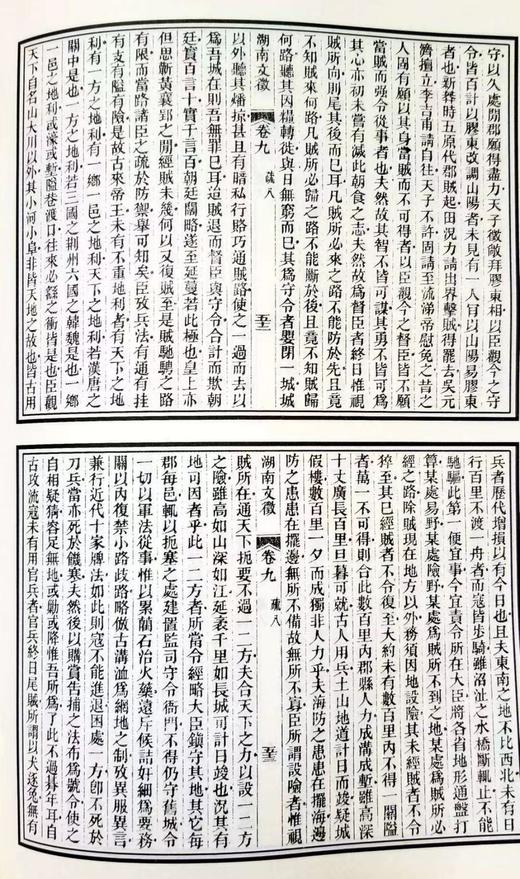 守以久處閒郡願得盡力天子徵敞拜膠東相以臣觀今之守
令皆百計以膠東改調山陽者未見有一人肎以山陽易膠東
者也新莽時五原代郡賊起田況力請出界擊賊得罷去吳元
濟擅立李吉甫請自往天子不許固請至流涕帝慰免之昔之
人固有願以其身當賊而不可得者以臣觀今之督臣皆不願
當賊而强令從事者也夫然故其智不皆可謀其勇不皆可爲
其心亦初未嘗有滅此朝食之志夫然故爲督臣者終日惟視
賊所向則尾其後而已耳凡賊所必來之路不能防於先且竟
不知賊來何路凡賊所必歸之路不能斷於後且竟不知賊歸
何路聽其因糧轉徙與日無窮而已其爲守令者嬰閉一城城
湖南文徵 卷九 疏八
以外聽其燔掠甚且有暗私行賂巧通賊路使之一過而去以
爲吾城在則吾無罪已耳迨賊退而督臣與守令合計而欺朝
廷實百言十實千言百朝廷闊略遂至延蔓若此極也皇上亦
但思蘄黃襄郢之閒經賊未幾何以又復賊至是賊馳騁之路
有限而當路諸臣之疏於防禦舉可知矣臣攷兵法有通有挂
有支有隘有險是故古來帝王未有不重地利者有天下之地
利有一方之地利有一鄉一邑之地利天下之地利若漢唐之
關中是也一方之地利若三國之荆州六國之韓魏是也一鄉
一邑之地利或濠或塹隘巷渡口往來必繇之衝皆是也臣觀
天下自名山大川以外其小河小阜非皆天地之故也皆古用
兵者歷代增損以有今日也夫東南之地不比西北未有日
行百里不渡一舟者而寇皆步騎雖沼沚之水橋斷輒止不能
馳驅此第一便宜事今宜責令所在大臣將各省地形通盤打
算某處易野某處險野某處爲賊所不到之地某處爲賊所必
經之路除賊現在地方以外務須因地設險其未經賊者不令
猝至其已經賊者不令復至大約未有數百里內不得一關隘
者萬一不可得則合此數百里內郡縣人力成溝成塹雖高深
十丈廣長百里旦暮可就古人用兵土山地道計日而竣疑城
假樓數百里一夕而成獨非人力乎夫海防之患患在擺海邊
防之患患在擺邊無所不備故無所不寡臣所謂設險者惟視
湖南文徵 卷九 疏八
賊所在通天下扼要不過一二方夫合天下之力以設一二方
之險雖高如山深如江延袤千里如長城可計日竣也況其有
地可因者乎此一二方者所當令經略大臣鎭守其地其它每
郡每邑輒以扼塞之處建置監司守令衙門不得仍守舊城令
一切以軍法從事惟以累藺石冶火藥遠斥候詰奸細爲要務
關以內復禁小路歧路略倣古溝洫爲網地之制攷異服異言
兼行近代十家牌法如此則寇不能進退困處一方卽不死於
刀兵當亦死於饑寒夫然後以購賞告捕之法布爲號令使之
自相疑猜容足無地或勦或降惟吾所爲了此不過朞年耳自
古攻流寇未有用官兵者官兵終日尾賊所謂以犬逐兔無有